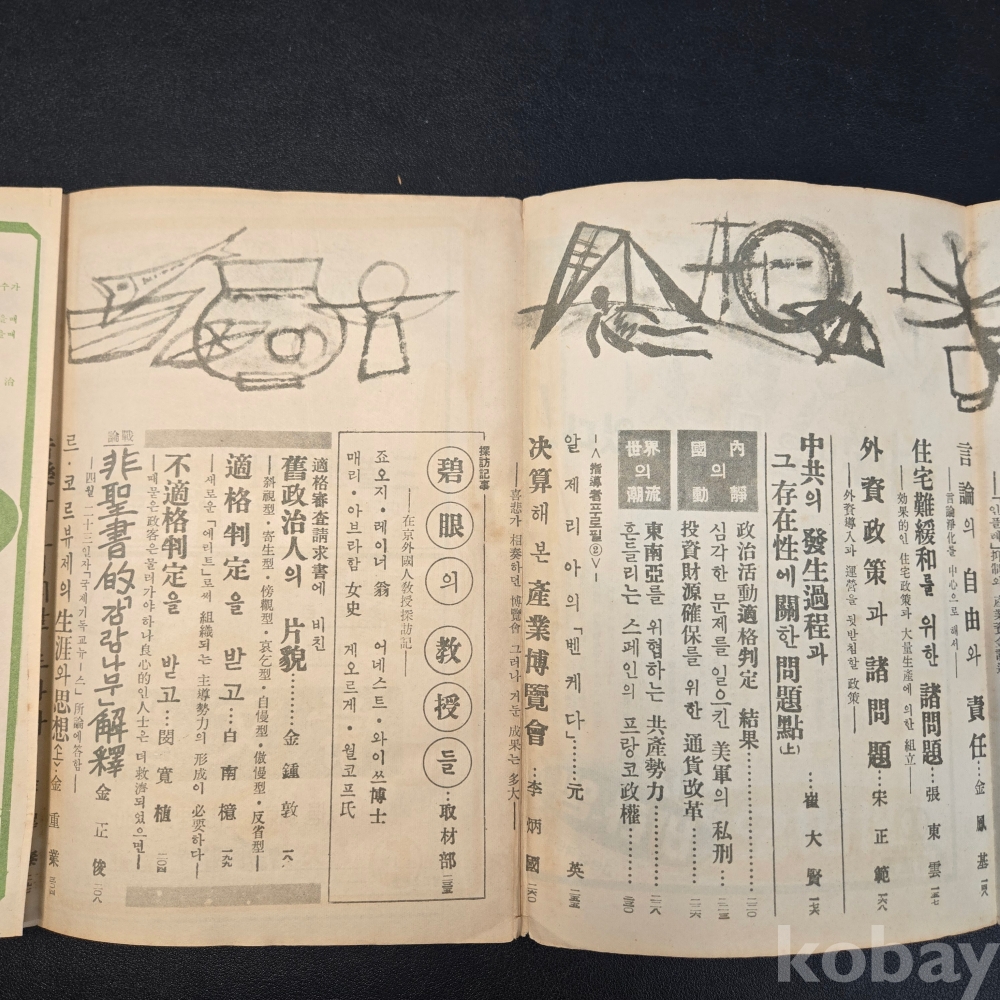 言論의 自由와 責任…金鳳基
—言論淨化를 中心으로 해서—
住宅難緩和를 위한 諸問題…張東雲 一五七
—効果的인 住宅政策과 大量生産에 의한 組立—
外資政策과 諸問題…宋正範 一六八
—外資導入과 運營을 뒷받침할 政策—
中共의 發生過程과
그 存在性에 關한 問題點(上)……崔大賢 一七六
國內의 動靜
政治活動適格判定 結果
심각한 문제를 일으킨 美軍의 私刑
投資財源確保를 위한 通貨改革
世界의 潮流
東南亞를 위협하는 共産勢力
흔들리는 스페인의 프랑코政權
—〈指導者프로필②〉—
알제리아의「벤케다」……元英
決算해 본 産業博覽會…李炳國 一六〇
—喜悲가 相奏하던 博覽會 그러나 거둔 成果는 多大—
探訪記事
碧眼의 敎授들…取材部
—在京外國人敎授探訪記—
죠오지·레이너 翁 어네스트·와이쓰博士
매리·아브라함 女史 게오르게·월코프氏
適格審査請求書에 비친
舊政治人의 片貌……金鍾敦
—斜視型·寄生型·傍觀型·哀乞型·自慢型·傲慢型·反省型—
適格判定을 받고…白南檍
—새로운「에리트」로써 組織되는 主導勢力의 形成이 必要하다—
不適格判定을 받고…閔寬植 二〇四
—때묻은政客은물러가야하나良心的인人士은 더救濟되었으면—
論戰
非聖書的「감람나무」解釋 金正俊 二〇八
—四月 二十三일자「국제기독교뉴—스」所論에答함—
르·코르뷰제의 生涯와 思想 金重業
kobay